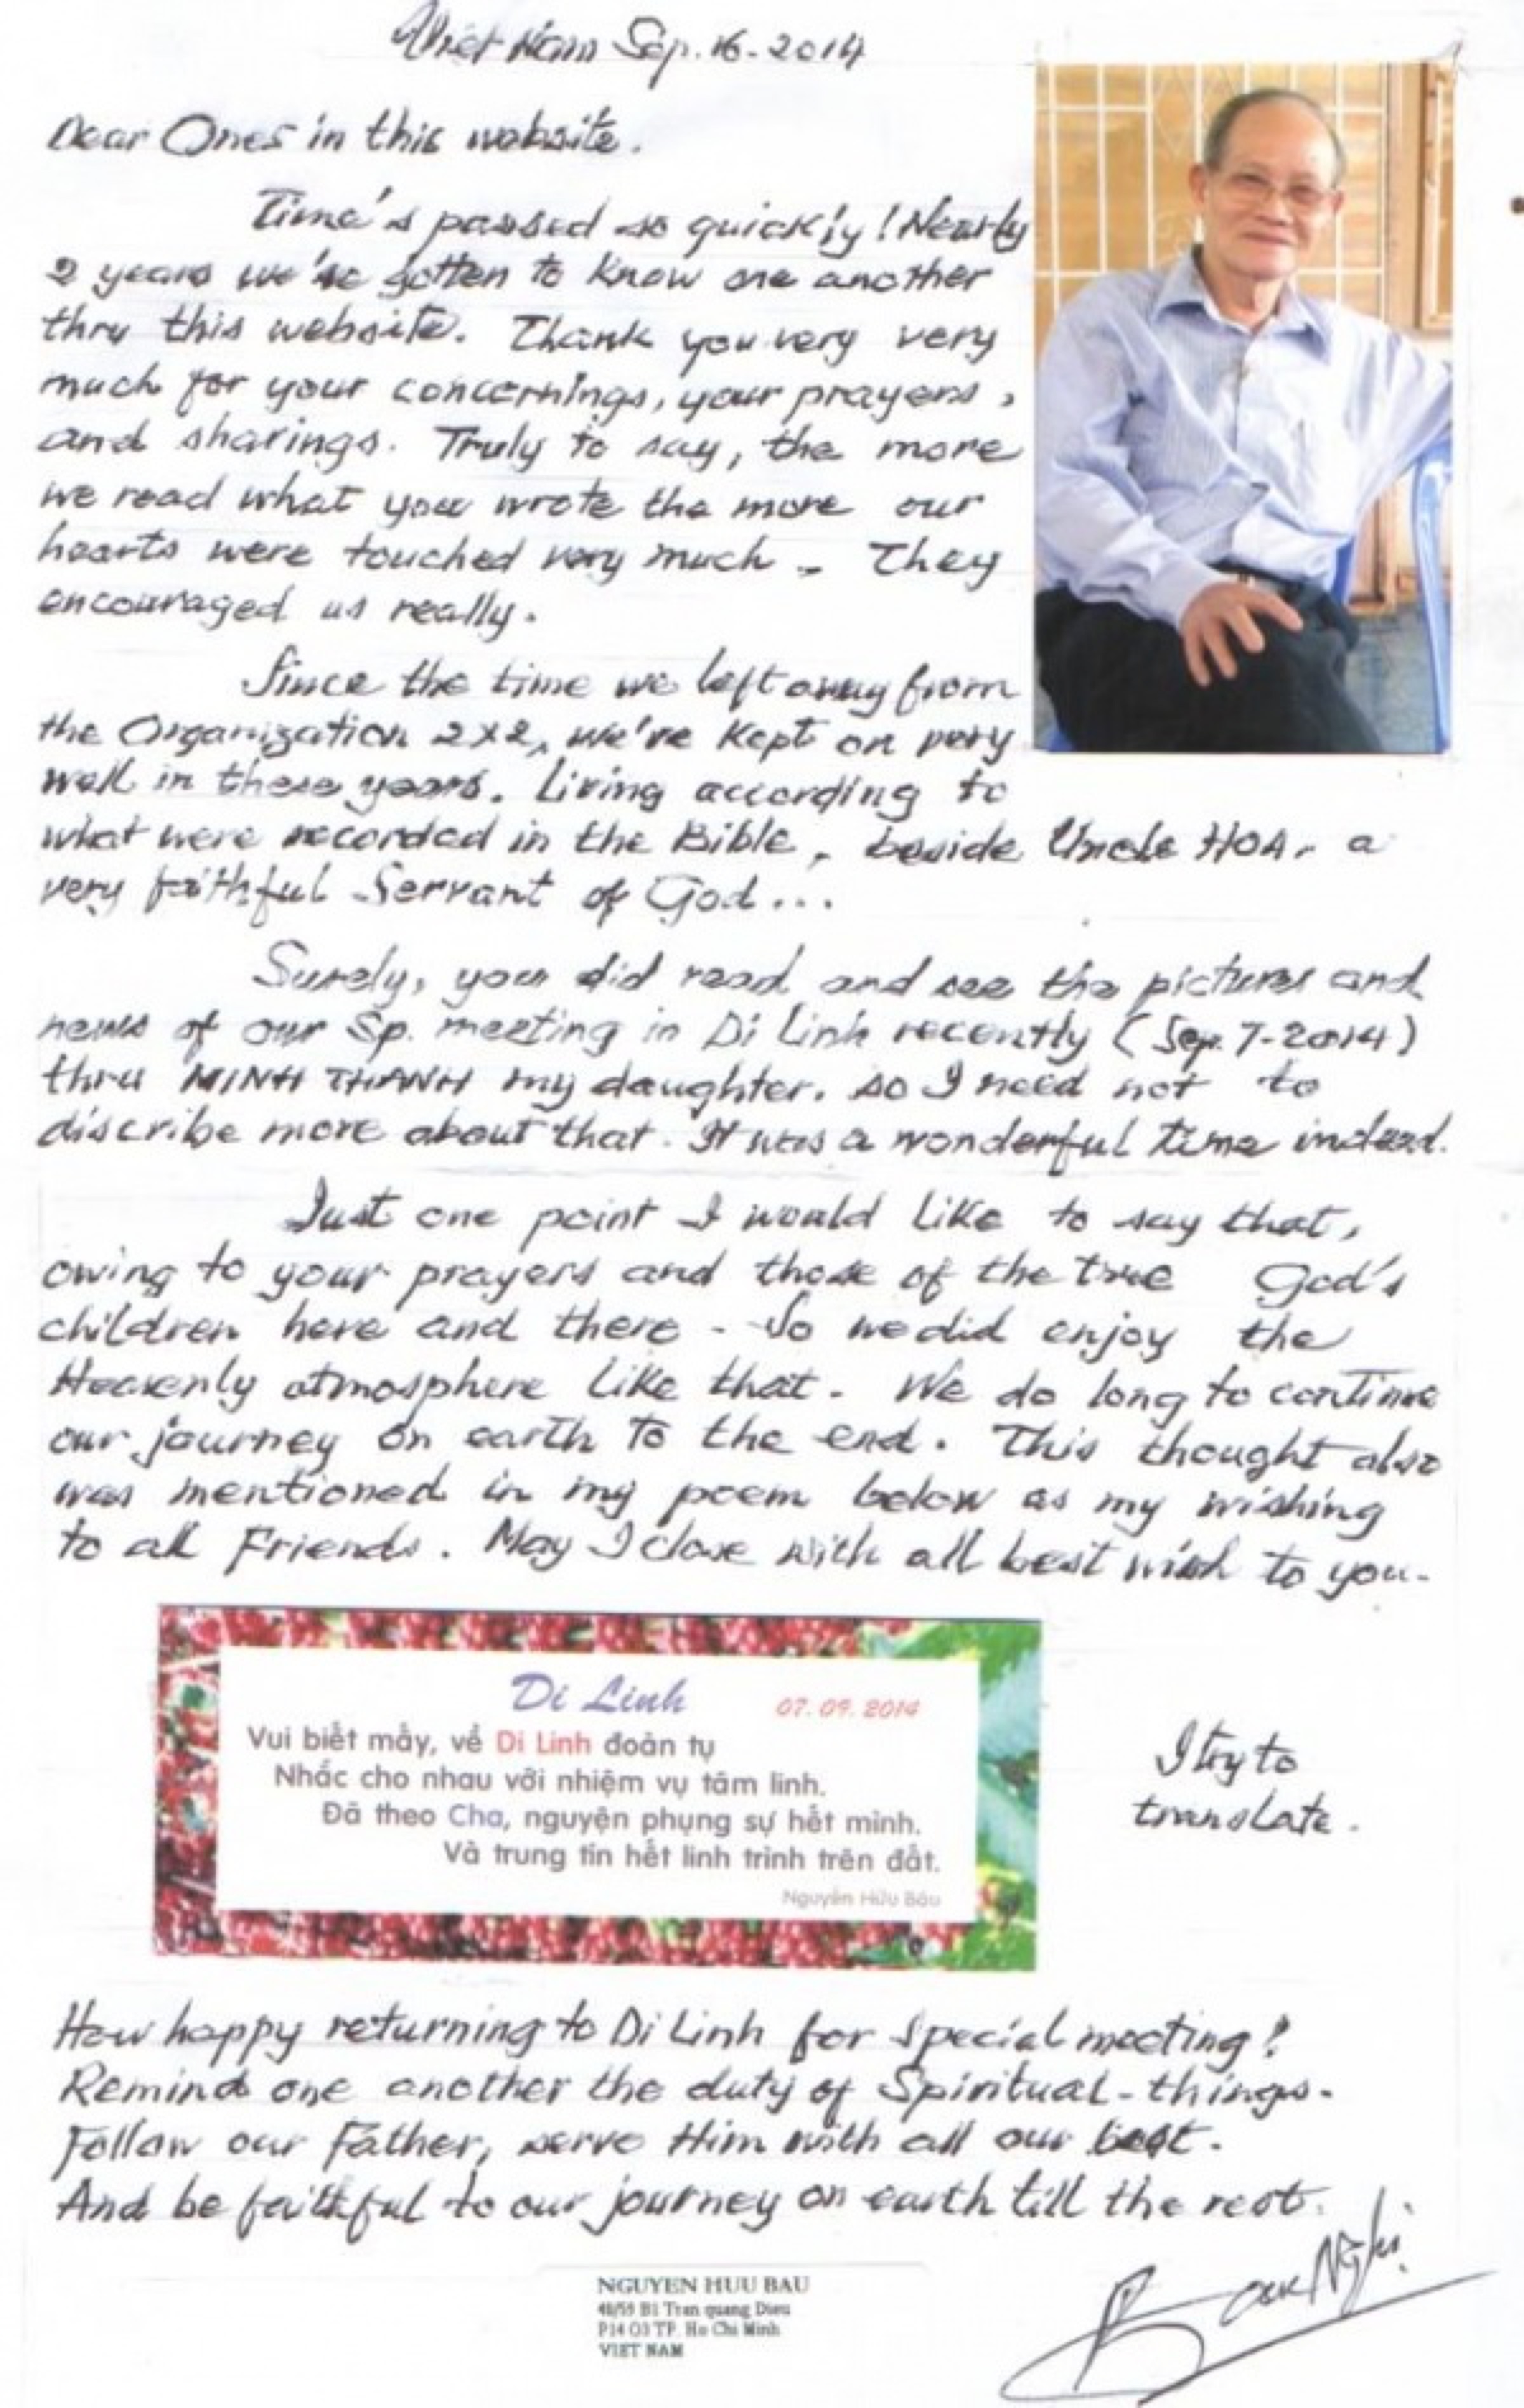 Viet Nam Sep. 16-2014
Dear Ones in this website.
Time's passed so quickly! Nearly
2 years we've gotten to know one another
thru this website. Thank you very very
much for your concernings, your prayers,
and sharings. Truly to say, the more
we read what you wrote the more our
hearts were touched very much. They
encouraged us really.
Since the time we left away from
the Organization 2x2, we're kept on very
well in these years. Living according to
what were recorded in the Bible, beside Uncle HOA, a
very faithful Servant of God...
Surely, you did read and see the pictures and
news of our Sp. meeting in Di Linh recently (Sep. 7-2014)
thru MINH THANH my daughter. so I need not to
discribe more about that. It was a wonderful time indeed.
Just one point I would like to say that,
owing to your prayers and those of the true God's
children here and there - So we did enjoy the
Heavenly atmosphere like that. We do long to continue
our journey on earth to the end. This thought also
was mentioned in my poem below as my wishing
to all Friends. May I close with all best wish to you.
Di Linh 07.09.2014
Vui biết mấy, về Di Linh đoàn tụ
Nhắc cho nhau với nhiệm vụ tâm linh.
Đã theo Cha, nguyện phụng sự hết mình.
Và trung tín hết linh trình trên đất.
Nguyễn Hữu Báu
I try to
translate.
How happy returning to Di Linh for Special meeting!
Remind one another the duty of Spiritual-things.
Follow our Father, serve Him with all our best.
And be faithful to our journey on earth till the rest.
NGUYEN HUU BAU
48/55 B1 Tran quang Dieu
P14 Q3 TP. Ho Chi Minh
VIET NAM